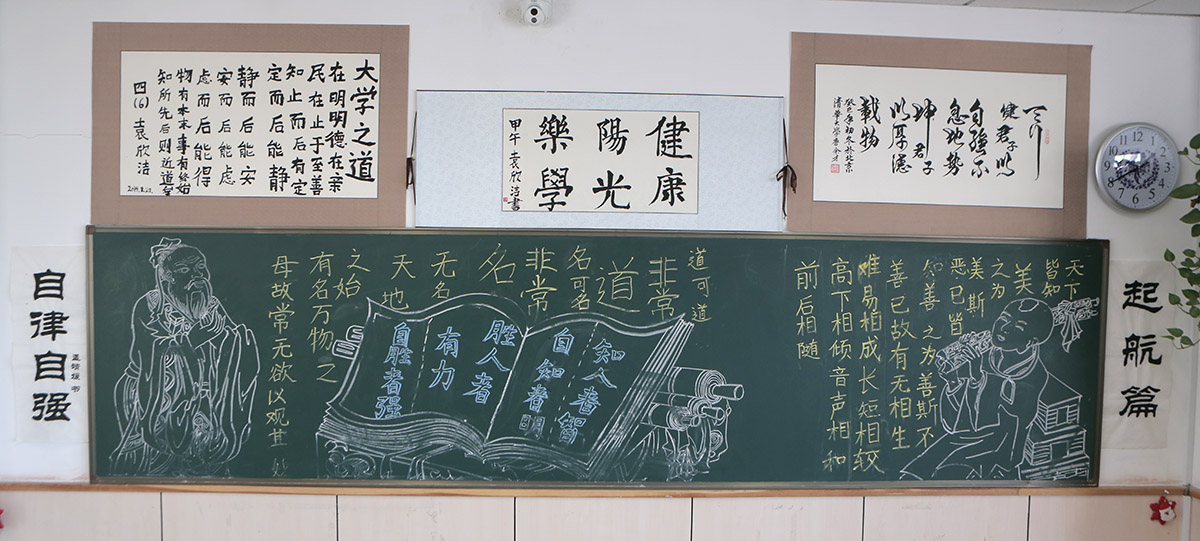 大学之道
在明明德在亲
民在止于至善
知止而后有定
定而后能静
静而后能安
安而后能虑
虑而后能得
物有本末事有终始
知所先后则近道矣
四(6)袁欣洁
健康
陽光
樂學
甲午 袁欣洁書
天行
健君子以
自強不
息地势
坤君子
以厚德
載物
癸巳年初冬於北京
清華大學
自律自强
起航篇
天下
皆知
美
之为
美斯
恶已皆
知善之为善斯不
善已故有无相生
难易相成长短相较
高下相倾音声相和
前后相随
道可道
非常
道
名可名
非常
名
无名
天地
之始
有名万物之
母故常无欲以观其妙
知人者智
自知者明
胜人者
有力
自胜者强